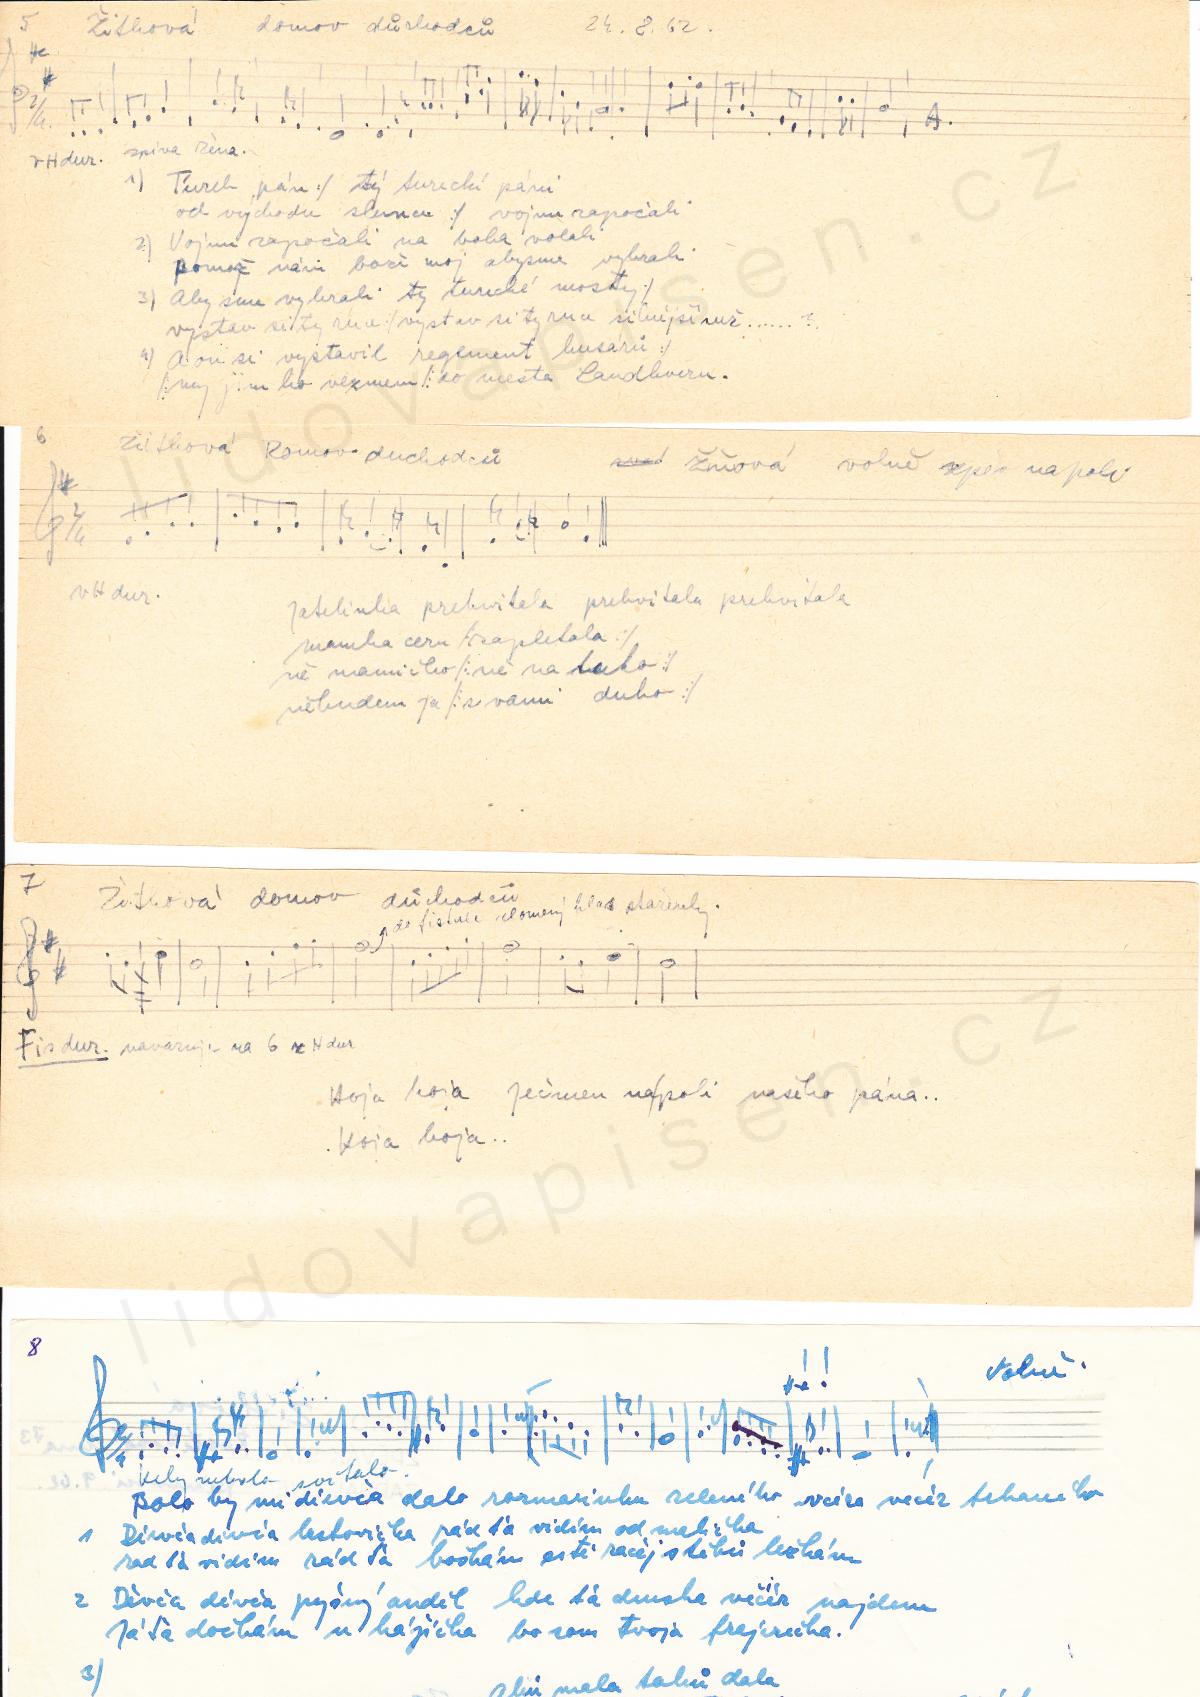 5 Žitková domov důchodců 24.8.62.
2/4
v H dur. spiva žena.
1) Turek pán :/ tý turecki páni
od východu slunca :/ vojnu započali
2) Vojnu započali na boha volali
pomož nám bože moj abysme vyhrali
3) Aby sme vyhrali ty turecké mosty :/
vystav si ty rna :/ vystav si ty rna silnější než ......?
4) A on si vystavil regiment husarů :/
/: my jim ho vezmem /: do mesta Landhveru.
6 Žitková Domov duchodců Žňová volně zpěv na poli
2/4
v H dur.
Jatelinka prekvitala prekvitala prekvitala
mamka ceru /: zapletala :/
ně mamičko /: ně na tuho :/
něbudem ja /: s vámi duho :/
7
Žitková domov důchodců
do fistule zlomený hlas stařenky.
Fis dur. navazuje na 6 z H dur
Hoja hoja Ječmen na poli našeho pána..
Hoja hoja..
8
Volně.
Kdby nebolo svitalo.
Bolo by mi dievča dalo rozmarinku zeleného včera večér trhaného
1 Dievča dievča lastovička rád ťa vidím od malička
rad ťa vidím rád ťa bočkám ešte račej s tebú ležkám
2 Dévča dévča pyšný anděl kde ťa dneska večér najdem
Já ťa dočkám u hájička bo som tvoja frajerečka.
3)
abu mala takú dala